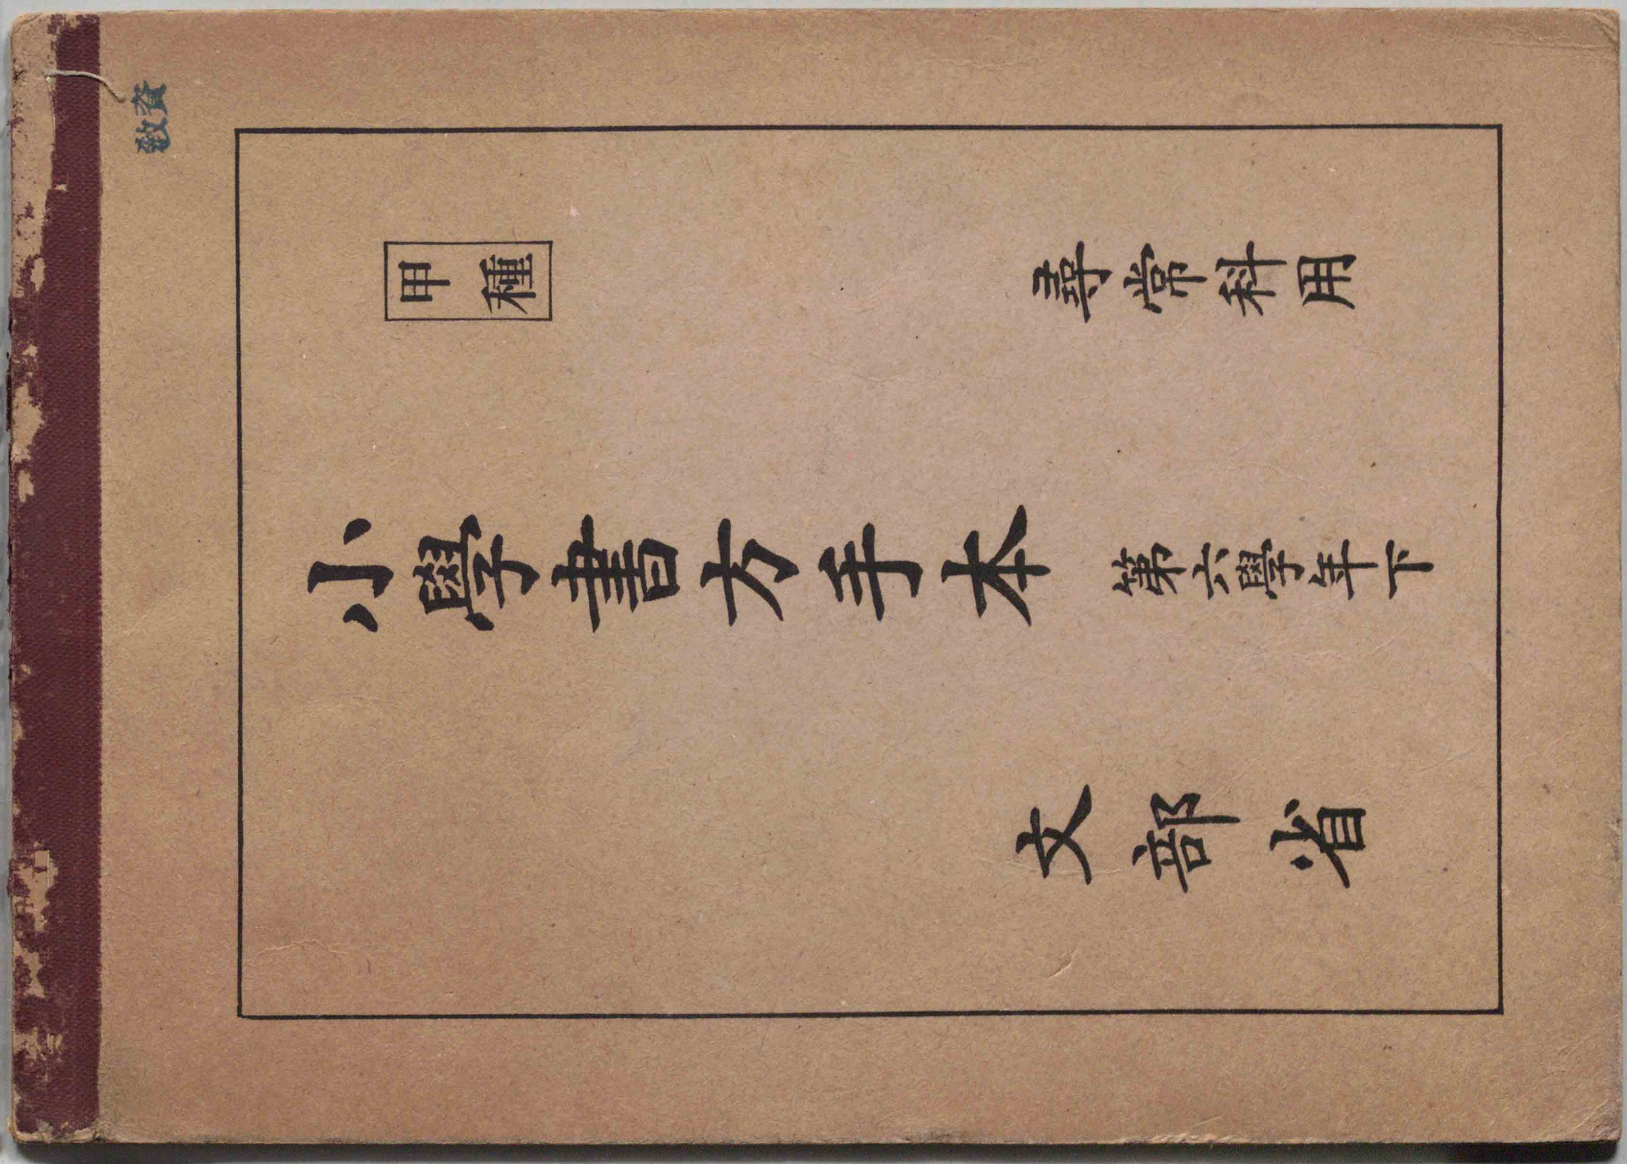 教資
甲種
尋常科用
小學書方手本 第六學年下
文部省